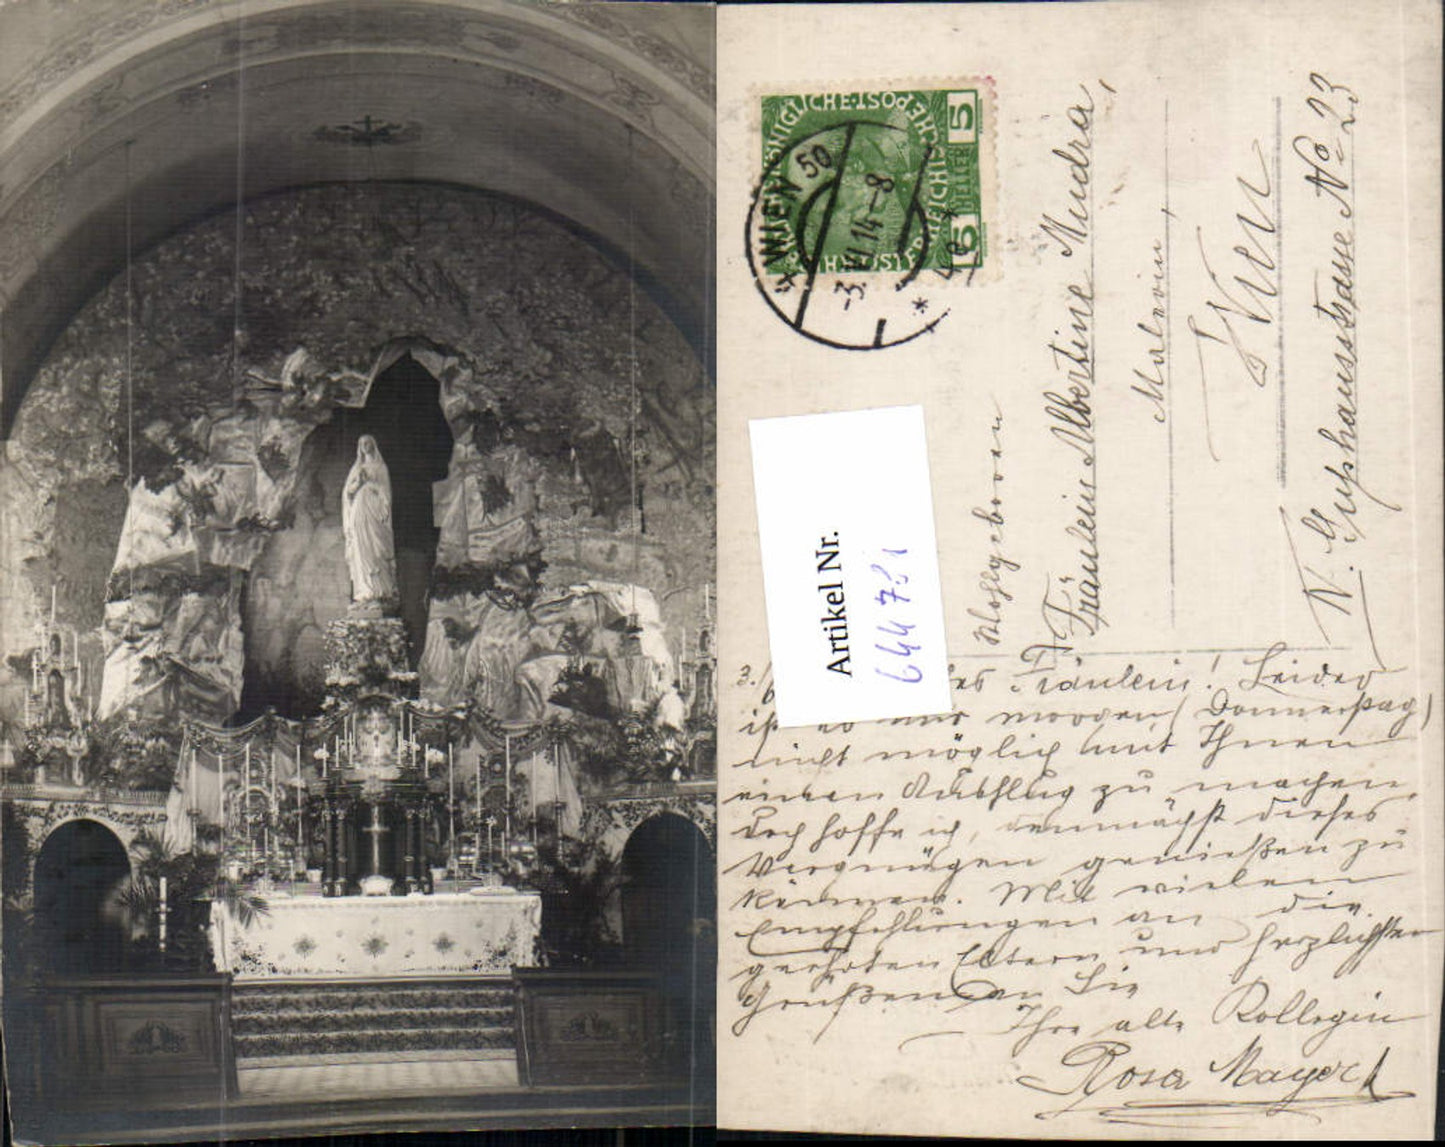 K.K. ÖSTERREICHISCHE POST
5 HELLER 5
* WIEN 50 *
-3. VI. 14-8
* 4e *
Artikel Nr.
644781
Wohlgeboren
Fräulein Albertine Mudra,
Malerin,
Wien
IV. Gußhausstrasse No 23
3./6. Fräulein! Leider
ist es mir morgen (Donnerstag)
nicht möglich mit Ihnen
einen Ausflug zu machen,
doch hoffe ich, demnächst dieses
Vergnügen genießen zu
können. Mit vielen
Empfehlungen an die
geehrten Eltern und herzlichsten
Grüßen an Sie
Ihre alte Kollegin
Rosa Mayer